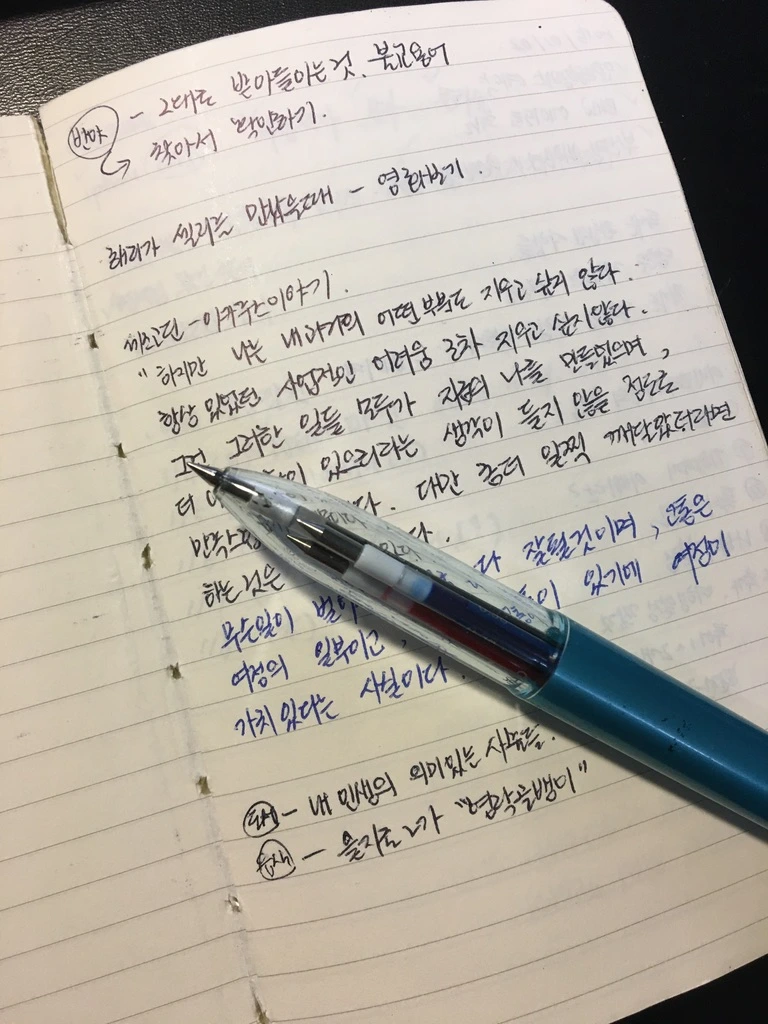 반야 - 그대로 받아들이는것. 불교용어
찾아서 확인하기.
해리가 샐리를 만났을때 - 영화보기.
이카루스이야기.
" 하지만 나는 내 과거의 어떤 부분도 지우고 싶지 않다.
항상 있었던 사업적인 어려움 조차 지우고 싶지않다.
그러한 일들 모두가 지금의 나를 만들었으며,
더 있으리라는 생각이 들지 않을 정도로
다만 좀더 일찍 깨달았더라면
하는것은 다 잘될것이며,
무슨일이 있기에 여정이
여정의 일부이고,
가치 있다는 사실이다.
도서 - 내 인생의 의미있는 사물들.
음식 - 을지로 2가 "영락골뱅이"